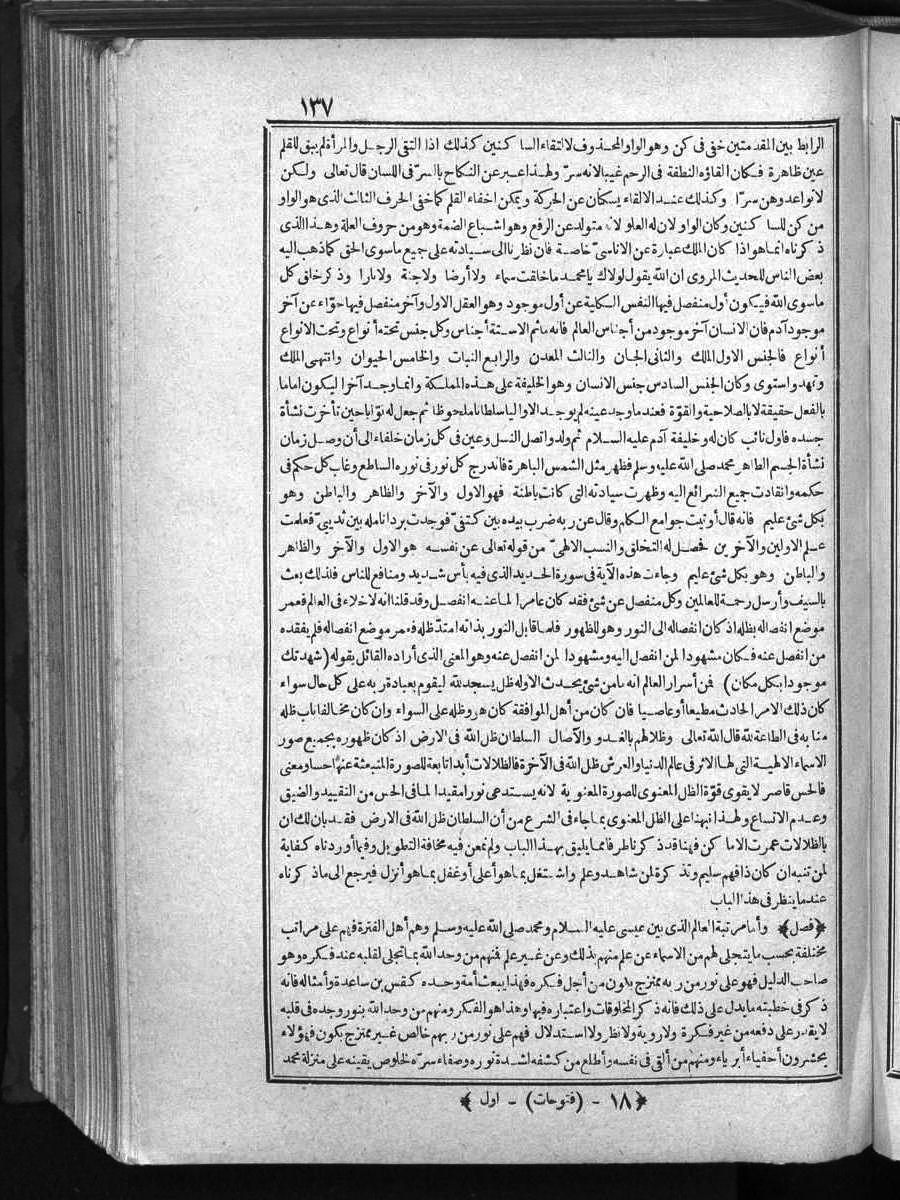 ١٣٧
الرابط بين المقدمتين خفى فى كن وهو الواو المحذوف لالتقاء الساكنين كذلك اذا التقى الرجل والمرأة لم يبق للقلم
عين ظاهرة فكان القاؤه النطفة فى الرحم غيبا لانه سرّ ولهذا عبر عن النكاح بالسرّ فى اللسان قال تعالى ولكن
لا تواعدوهن سرّا وكذلك عند الالقاء يسكنان عن الحركة ويمكن اخفاء القلم كما خفى الحرف الثالث الذى هو الواو
من كن للساكنين وكان الواو لان له العلو لانه متولد عن الرفع وهو اشباع الضمة وهو من حروف العلة وهذا الذى
ذكرناه انما هو اذا كان الملك عبارة عن الاناسىّ خاصة فان نظرنا الى سيادته على جميع ماسوى الحق كما ذهب اليه
بعض الناس للحديث المروى ان الله يقول لولاك يا محمد ما خلقت سماء ولا أرضا ولا جنة ولا نارا وذكر خلق كل
ماسوى الله فيكون أول منفصل فيها النفس الكلية عن أول موجود وهو العقل الاول وآخر منفصل فيها حوّاء عن آخر
موجود آدم فان الانسان آخر موجود من أجناس العالم فانه ما ثم الاستة أجناس وكل جنس تحته أنواع وتحت الانواع
أنواع فالجنس الاول الملك والثانى الجان والثالث المعدن والرابع النبات والخامس الحيوان وانتهى الملك
وتمهد واستوى وكان الجنس السادس جنس الانسان وهو الخليفة على هذه المملكة وانما وجد آخرا ليكون اماما
بالفعل حقيقة لا بالصلاحية والقوّة فعندما وجد عينه لم يوجد الا واليا سلطانا ملحوظا ثم جعل له نوّابا حين تأخرت نشأة
جسده فاول نائب كان له وخليفة آدم عليه السلام ثم ولد واتصل النسل وعين فى كل زمان خلفاء الى أن وصل زمان
نشأة الجسم الطاهر محمد صلى الله عليه وسلم فظهر مثل الشمس الباهرة فاندرج كل نور فى نوره الساطع وغاب كل حكم فى
حكمه وانقادت جميع الشرائع اليه وظهرت سيادته التى كانت باطنة فهو الاول والآخر والظاهر والباطن وهو
بكل شئ عليم فانه قال أوتيت جوامع الكلم وقال عن ربه ضرب بيده بين كتفىّ فوجدت برد أنامله بين ثدييىّ فعلمت
علم الاولين والآخرين فحصل له التخلق والنسب الالهىّ من قوله تعالى عن نفسه هو الاول والآخر والظاهر
والباطن وهو بكل شئ عليم وجاءت هذه الآية فى سورة الحديد الذى فيه بأس شديد ومنافع للناس فلذلك بعث
بالسيف وأرسل رحمة للعالمين وكل منفصل عن شئ فقد كان عامرا لما عنه انفصل وقد قلنا انه لا خلاء فى العالم فعمر
موضع انفصاله بظله اذ كان انفصاله الى النور وهو للظهور فلما قابل النور بذاته امتدّ ظله فعمر موضع انفصاله فلم يفقده
من انفصل عنه فكان مشهودا لمن انفصل اليه ومشهودا لمن انفصل عنه وهو المعنى الذى أراده القائل بقوله (شهدتك
موجودا بكل مكان) فمن أسرار العالم انه ما من شئ يحدث الا وله ظل يسجد لله ليقوم بعبادة ربه على كل حال سواء
كان ذلك الامر الحادث مطيعا أو عاصيا فان كان من أهل الموافقة كان هو وظله على السواء وان كان مخالفا ناب ظله
منابه فى الطاعة لله قال الله تعالى وظلالهم بالغدو والآصال السلطان ظل الله فى الارض اذ كان ظهوره بجميع صور
الاسماء الالهية التى لها الاثر فى عالم الدنيا والعرش ظل الله فى الآخرة فالظلالات أبدا تابعة للصورة المنبعثة عنها حسا ومعنى
فالحس قاصر لا يقوى قوّة الظل المعنوى للصورة المعنوية لانه يستدعى نورا مقيدا لما فى الحس من التقييد والضيق
وعدم الاتساع ولهذا نبهنا على الظل المعنوى بما جاء فى الشرع من أن السلطان ظل الله فى الارض فقد بان لك ان
بالظلالات عمرت الاماكن فهنا قد ذكرنا طرفا مما يليق بهذا الباب ولم نمعن فيه مخافة التطويل وفيما أوردناه كفاية
لمن تنبه ان كان ذا فهم سليم وتذكرة لمن شاهد وعلم واشتغل بما هو أعلى أو غفل بما هو أنزل فيرجع الى ما ذكرناه
عندما ينظر فى هذا الباب
﴿فصل﴾ وأما مرتبة العالم الذى بين عيسى عليه السلام ومحمد صلى الله عليه وسلم وهم أهل الفترة فهم على مراتب
مختلفة بحسب ما يتجلى لهم من الاسماء عن علم منهم بذلك وعن غير علم فمنهم من وحد الله بما تجلى لقلبه عند فكره وهو
صاحب الدليل فهو على نور من ربه ممتزج بكون من أجل فكره فهذا يبعث أمة وحده كقس بن ساعدة وأمثاله فانه
ذكر فى خطبته ما يدل على ذلك فانه ذكر المخلوقات واعتباره فيها وهذا هو الفكر ومنهم من وحد الله بنور وجده فى قلبه
لا يقدر على دفعه من غير فكرة ولا روية ولا نظر ولا استدلال فهم على نور من ربهم خالص غير ممتزج بكون فهؤلاء
يحشرون أخفياء أبرياء ومنهم من ألقى فى نفسه وأطلع من كشفه لشدة نوره وصفاء سرّه لخلوص يقينه على منزلة محمد
﴿ ١٨ - (فتوحات) - اول ﴾